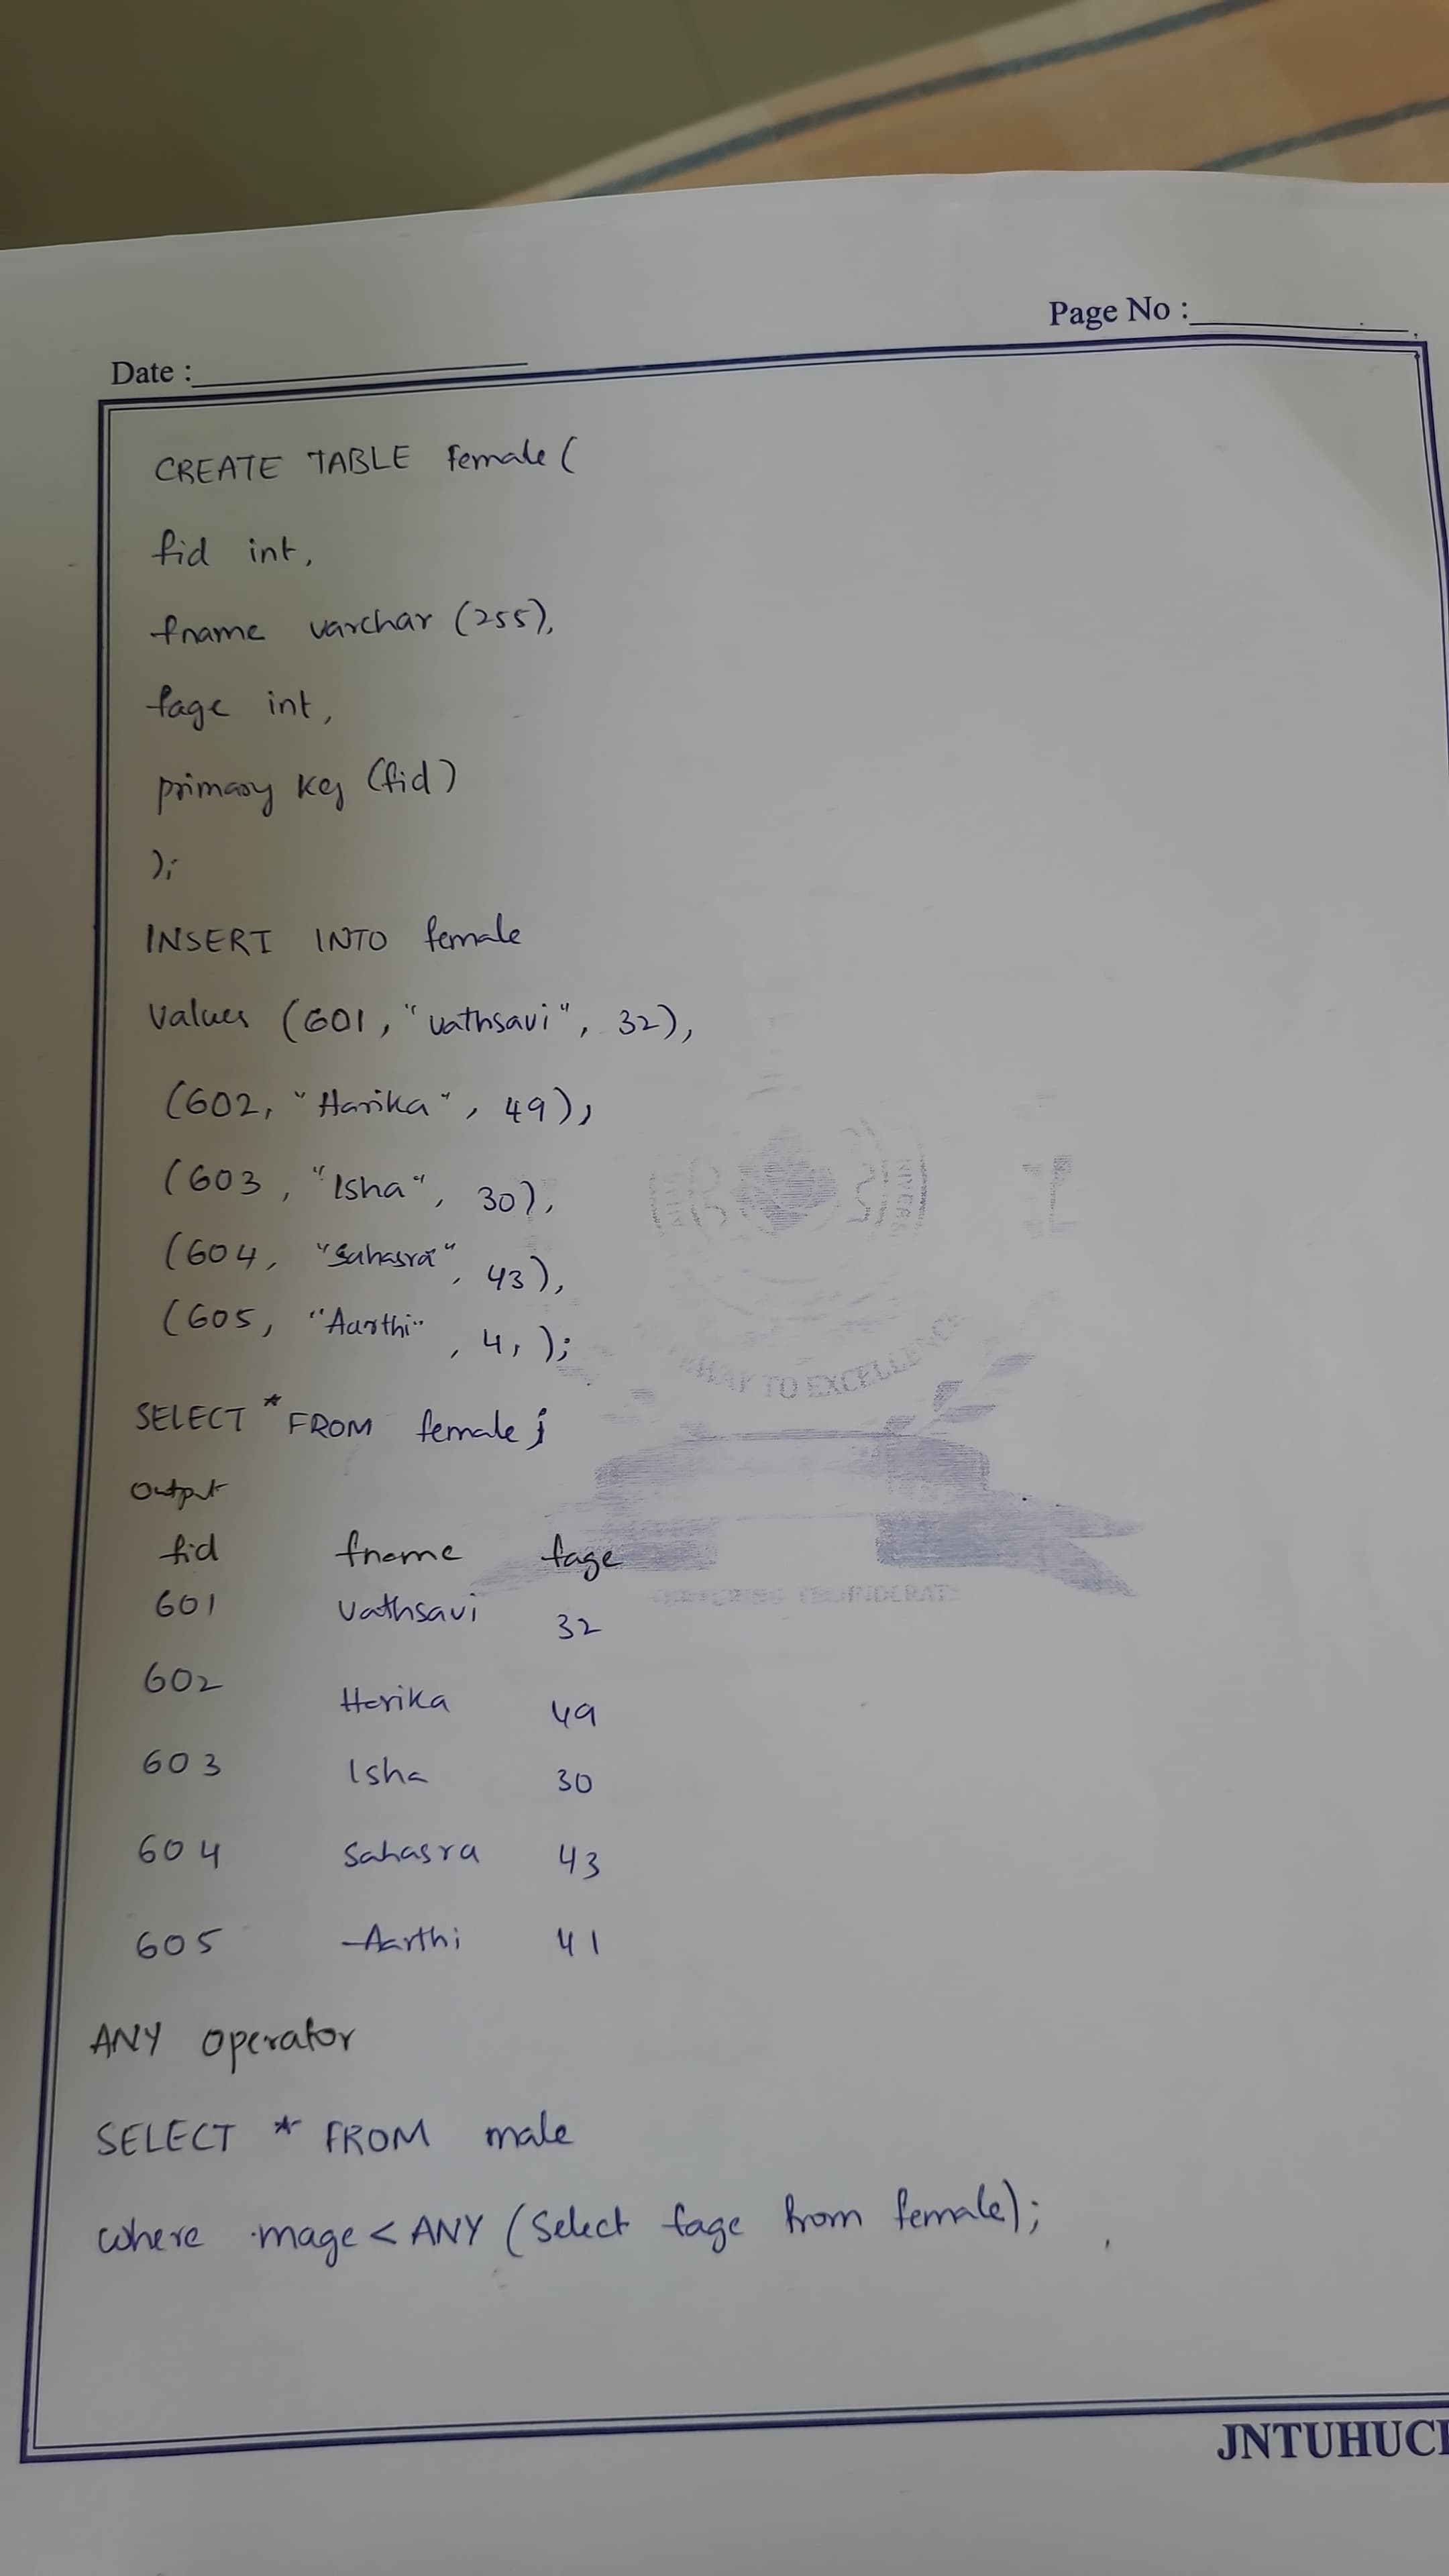 Page No :
Date :
CREATE TABLE female (
fid int,
fname varchar (255),
fage int,
primary key (fid)
);
INSERT INTO female
values (601, "vathsavi", 32),
(602, "Harika", 49),
(603, "Isha", 30),
(604, "Sahasra", 43),
(605, "Aarthi", 41);
SELECT * FROM female;
Output
fid fname fage
601 vathsavi 32
602 Harika 49
603 Isha 30
604 Sahasra 43
605 Aarthi 41
ANY operator
SELECT * FROM male
where mage < ANY (Select fage from female);
JNTUHUC